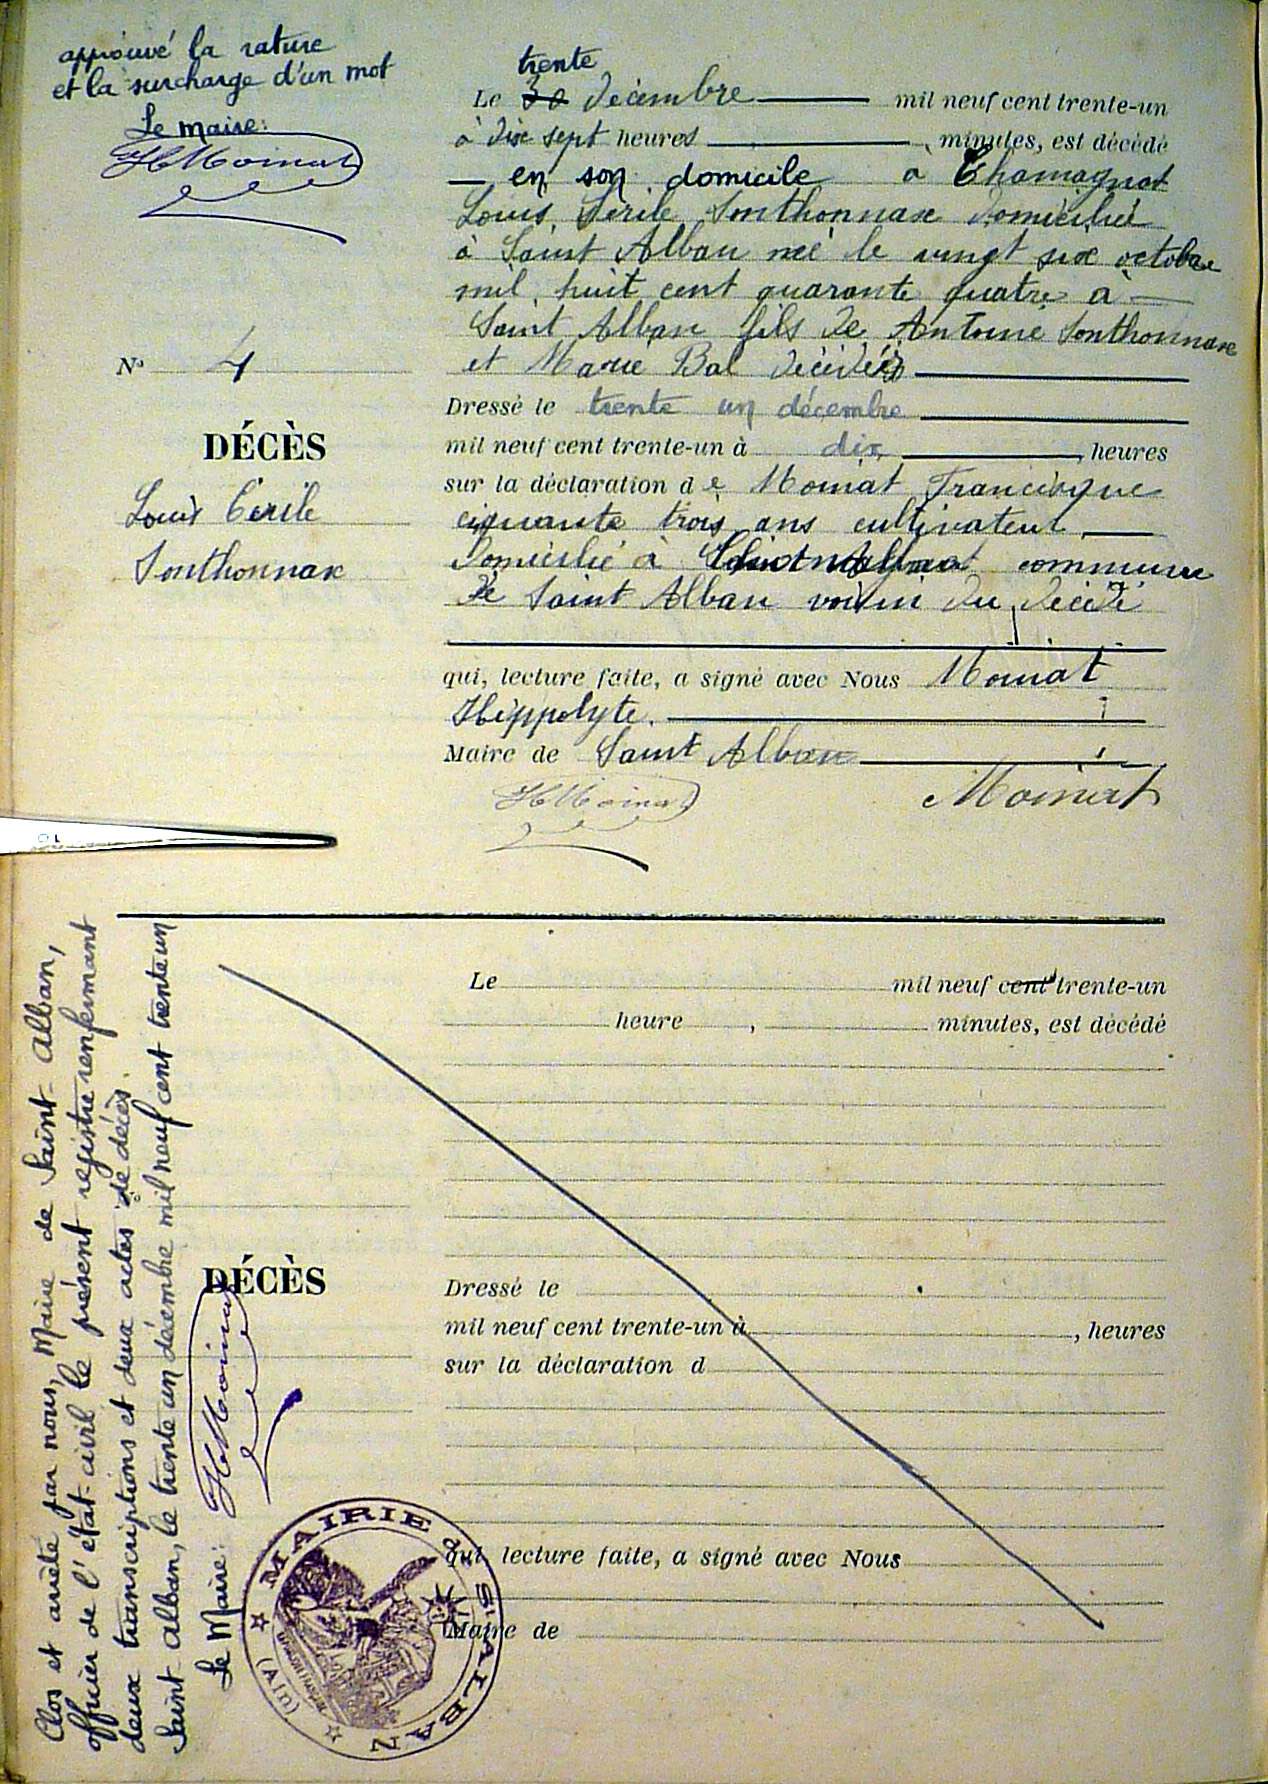 approuvé la rature
et la surcharge d'un mot
Le maire:
HMoinat
trente
Le 30 décembre mil neuf cent trente-un
à dix sept heures , minutes, est décédé
en son domicile à Chamagnat
Louis Cirile Sonthonnax domicilié
à Saint Alban né le vingt six octobre
mil huit cent quarante quatre à
Saint Alban fils de Antoine Sonthonnax
et Marie Bal décédés
N° 4
DÉCÈS
Louis Cirile
Sonthonnax
Dressé le trente un décembre
mil neuf cent trente-un à dix , heures
sur la déclaration de Moinat Francisque
cinquante trois ans cultivateur
domicilié à commune
de Saint Alban voisin du décédé
qui, lecture faite, a signé avec Nous Moinat
Hippolyte.
Maire de Saint Alban
HMoinat Moinat
Le mil neuf cent trente-un
heure , minutes, est décédé
DÉCÈS
Dressé le
mil neuf cent trente-un à , heures
sur la déclaration d
qui, lecture faite, a signé avec Nous
Maire de
Clos et arrêté par nous, Maire de Saint-Alban,
officier de l'état-civil le présent registre renfermant
deux transcriptions et deux actes de décès.
Saint-Alban, le trente un décembre mil neuf cent trente un
Le Maire:
HMoinat
MAIRIE DE ST ALBAN
(Ain)